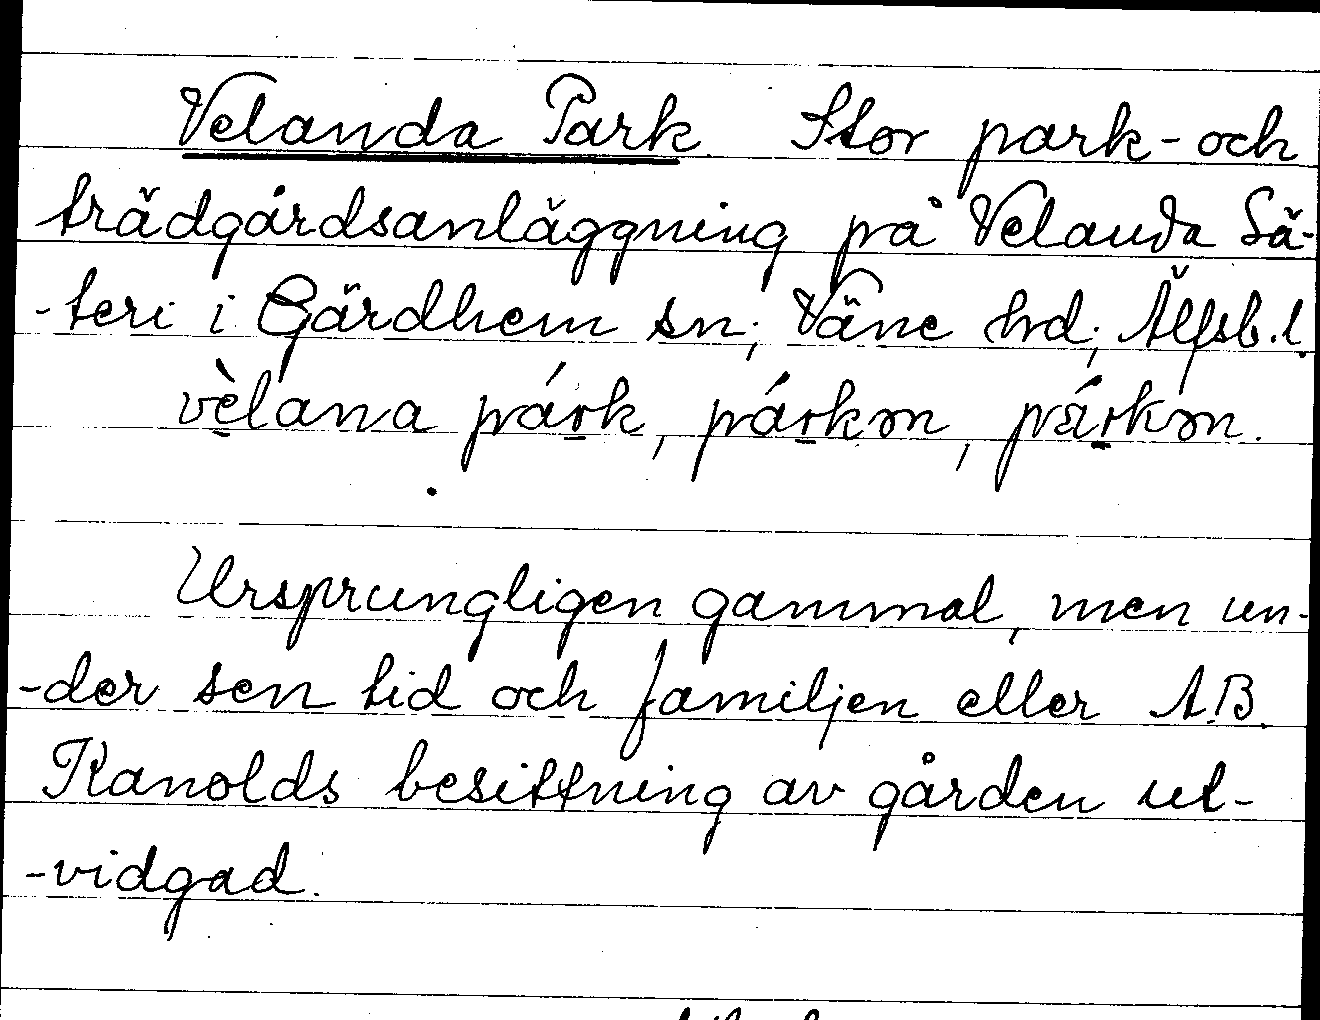 Velanda Park. Stor park- och
trädgårdsanläggning på Velanda Sä-
-teri i Gärdhem sn; Väne hd; Älfsb. l.
vèlana párk, párkən, párkən.
Ursprungligen gammal, men un-
-der sen tid och familjen eller A.B.
Kanolds besittning av gården ut-
-vidgad.